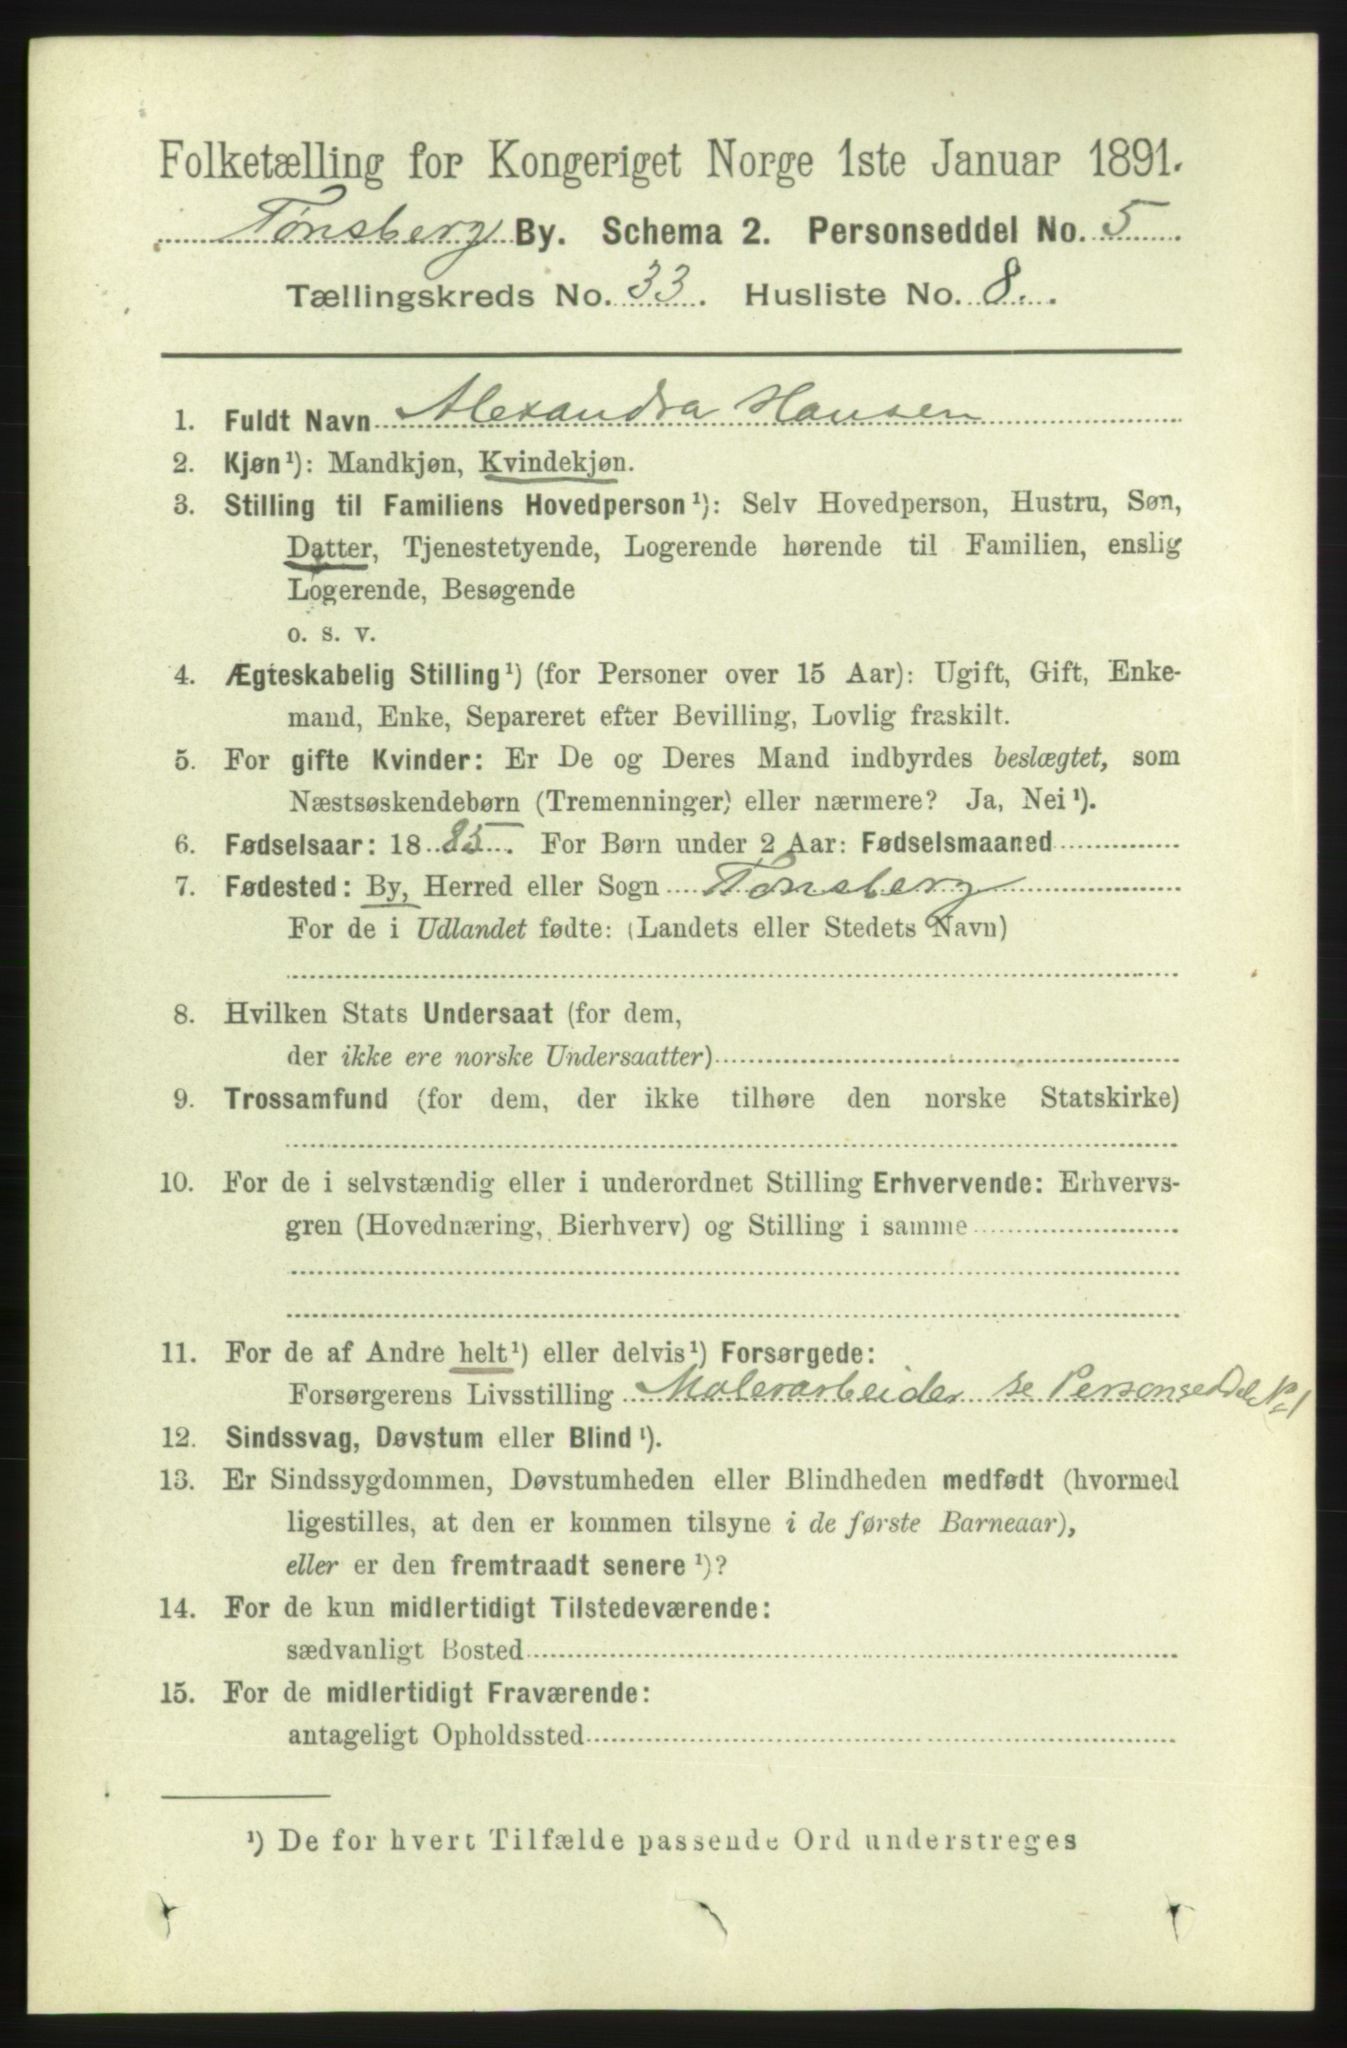 Folketælling for Kongeriget Norge 1ste Januar 1891.
Tønsberg By. Schema 2. Personseddel No. 5
Tællingskreds No. 33. Husliste No. 8.
1. Fuldt Navn Alexandra Hansen
2. Kjøn¹): Mandkjøn, Kvindekjøn.
3. Stilling til Familiens Hovedperson¹): Selv Hovedperson, Hustru, Søn,
Datter, Tjenestetyende, Logerende hørende til Familien, enslig
Logerende, Besøgende
o. s. v.
4. Ægteskabelig Stilling¹) (for Personer over 15 Aar): Ugift, Gift, Enke-
mand, Enke, Separeret efter Bevilling, Lovlig fraskilt.
5. For gifte Kvinder: Er De og Deres Mand indbyrdes beslægtet, som
Næstsøskendebørn (Tremenninger) eller nærmere? Ja, Nei¹).
6. Fødselsaar: 1885. For Børn under 2 Aar: Fødselsmaaned
7. Fødested: By, Herred eller Sogn Tønsberg
For de i Udlandet fødte: (Landets eller Stedets Navn)
8. Hvilken Stats Undersaat (for dem,
der ikke ere norske Undersaatter)
9. Trossamfund (for dem, der ikke tilhøre den norske Statskirke)
10. For de i selvstændig eller i underordnet Stilling Erhvervende: Erhvervs-
gren (Hovednæring, Bierhverv) og Stilling i samme
11. For de af Andre helt¹) eller delvis¹) Forsørgede:
Forsørgerens Livsstilling Malerarbeider se Personseddel No 1
12. Sindssvag, Døvstum eller Blind¹).
13. Er Sindssygdommen, Døvstumheden eller Blindheden medfødt (hvormed
ligestilles, at den er kommen tilsyne i de første Barneaar),
eller er den fremtraadt senere¹)?
14. For de kun midlertidigt Tilstedeværende:
sædvanligt Bosted
15. For de midlertidigt Fraværende:
antageligt Opholdssted
¹) De for hvert Tilfælde passende Ord understreges